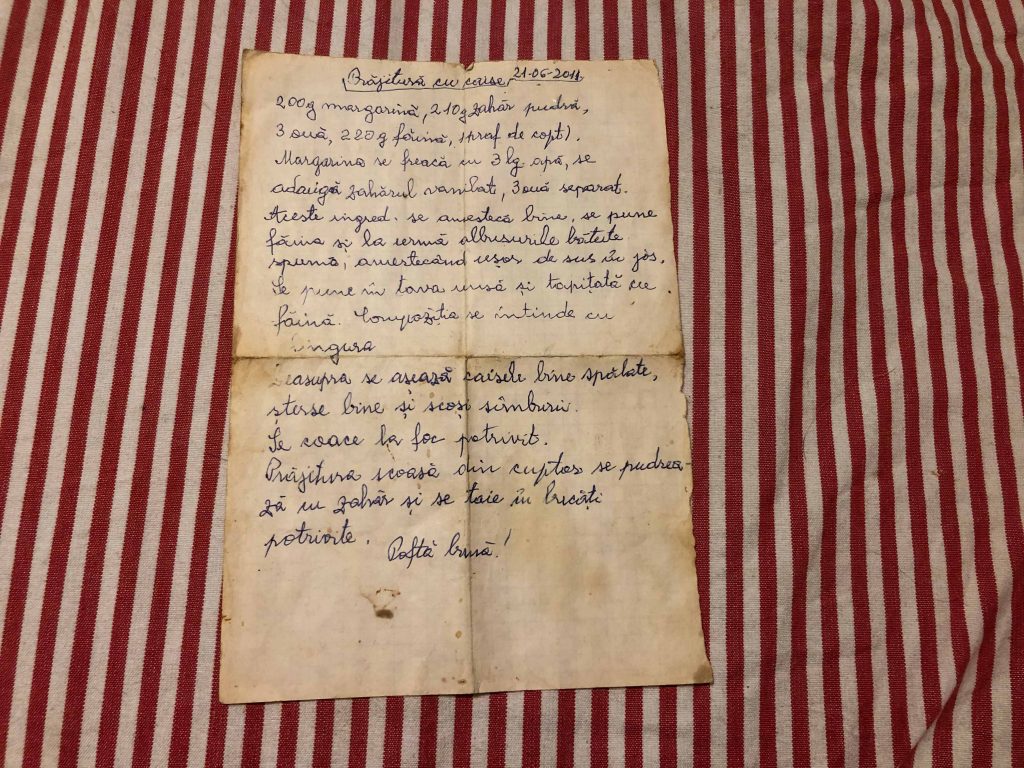 Prăjitură cu caise, 21-06-2011
200g margarină, 210g zahăr pudră,
3 ouă, 220g făină, 1praf de copt).
Margarina se freacă cu 3 lg apă, se
adaugă zahărul vanilat, 3 ouă separat.
Aceste ingred. se amestecă bine, se pune
făina și la urmă albușurile bătute
spumă, amestecând ușor de sus în jos.
Se pune în tava unsă și tapițată cu
făină. Compoziția se întinde cu
lingura
Deasupra se așează caisele bine spălate,
șterse bine și scoși sîmburii.
Se coace la foc potrivit.
Prăjitura scoasă din cuptor se pudrea-
ză cu zahăr și se taie în bucăți
potrivite.
Poftă bună!